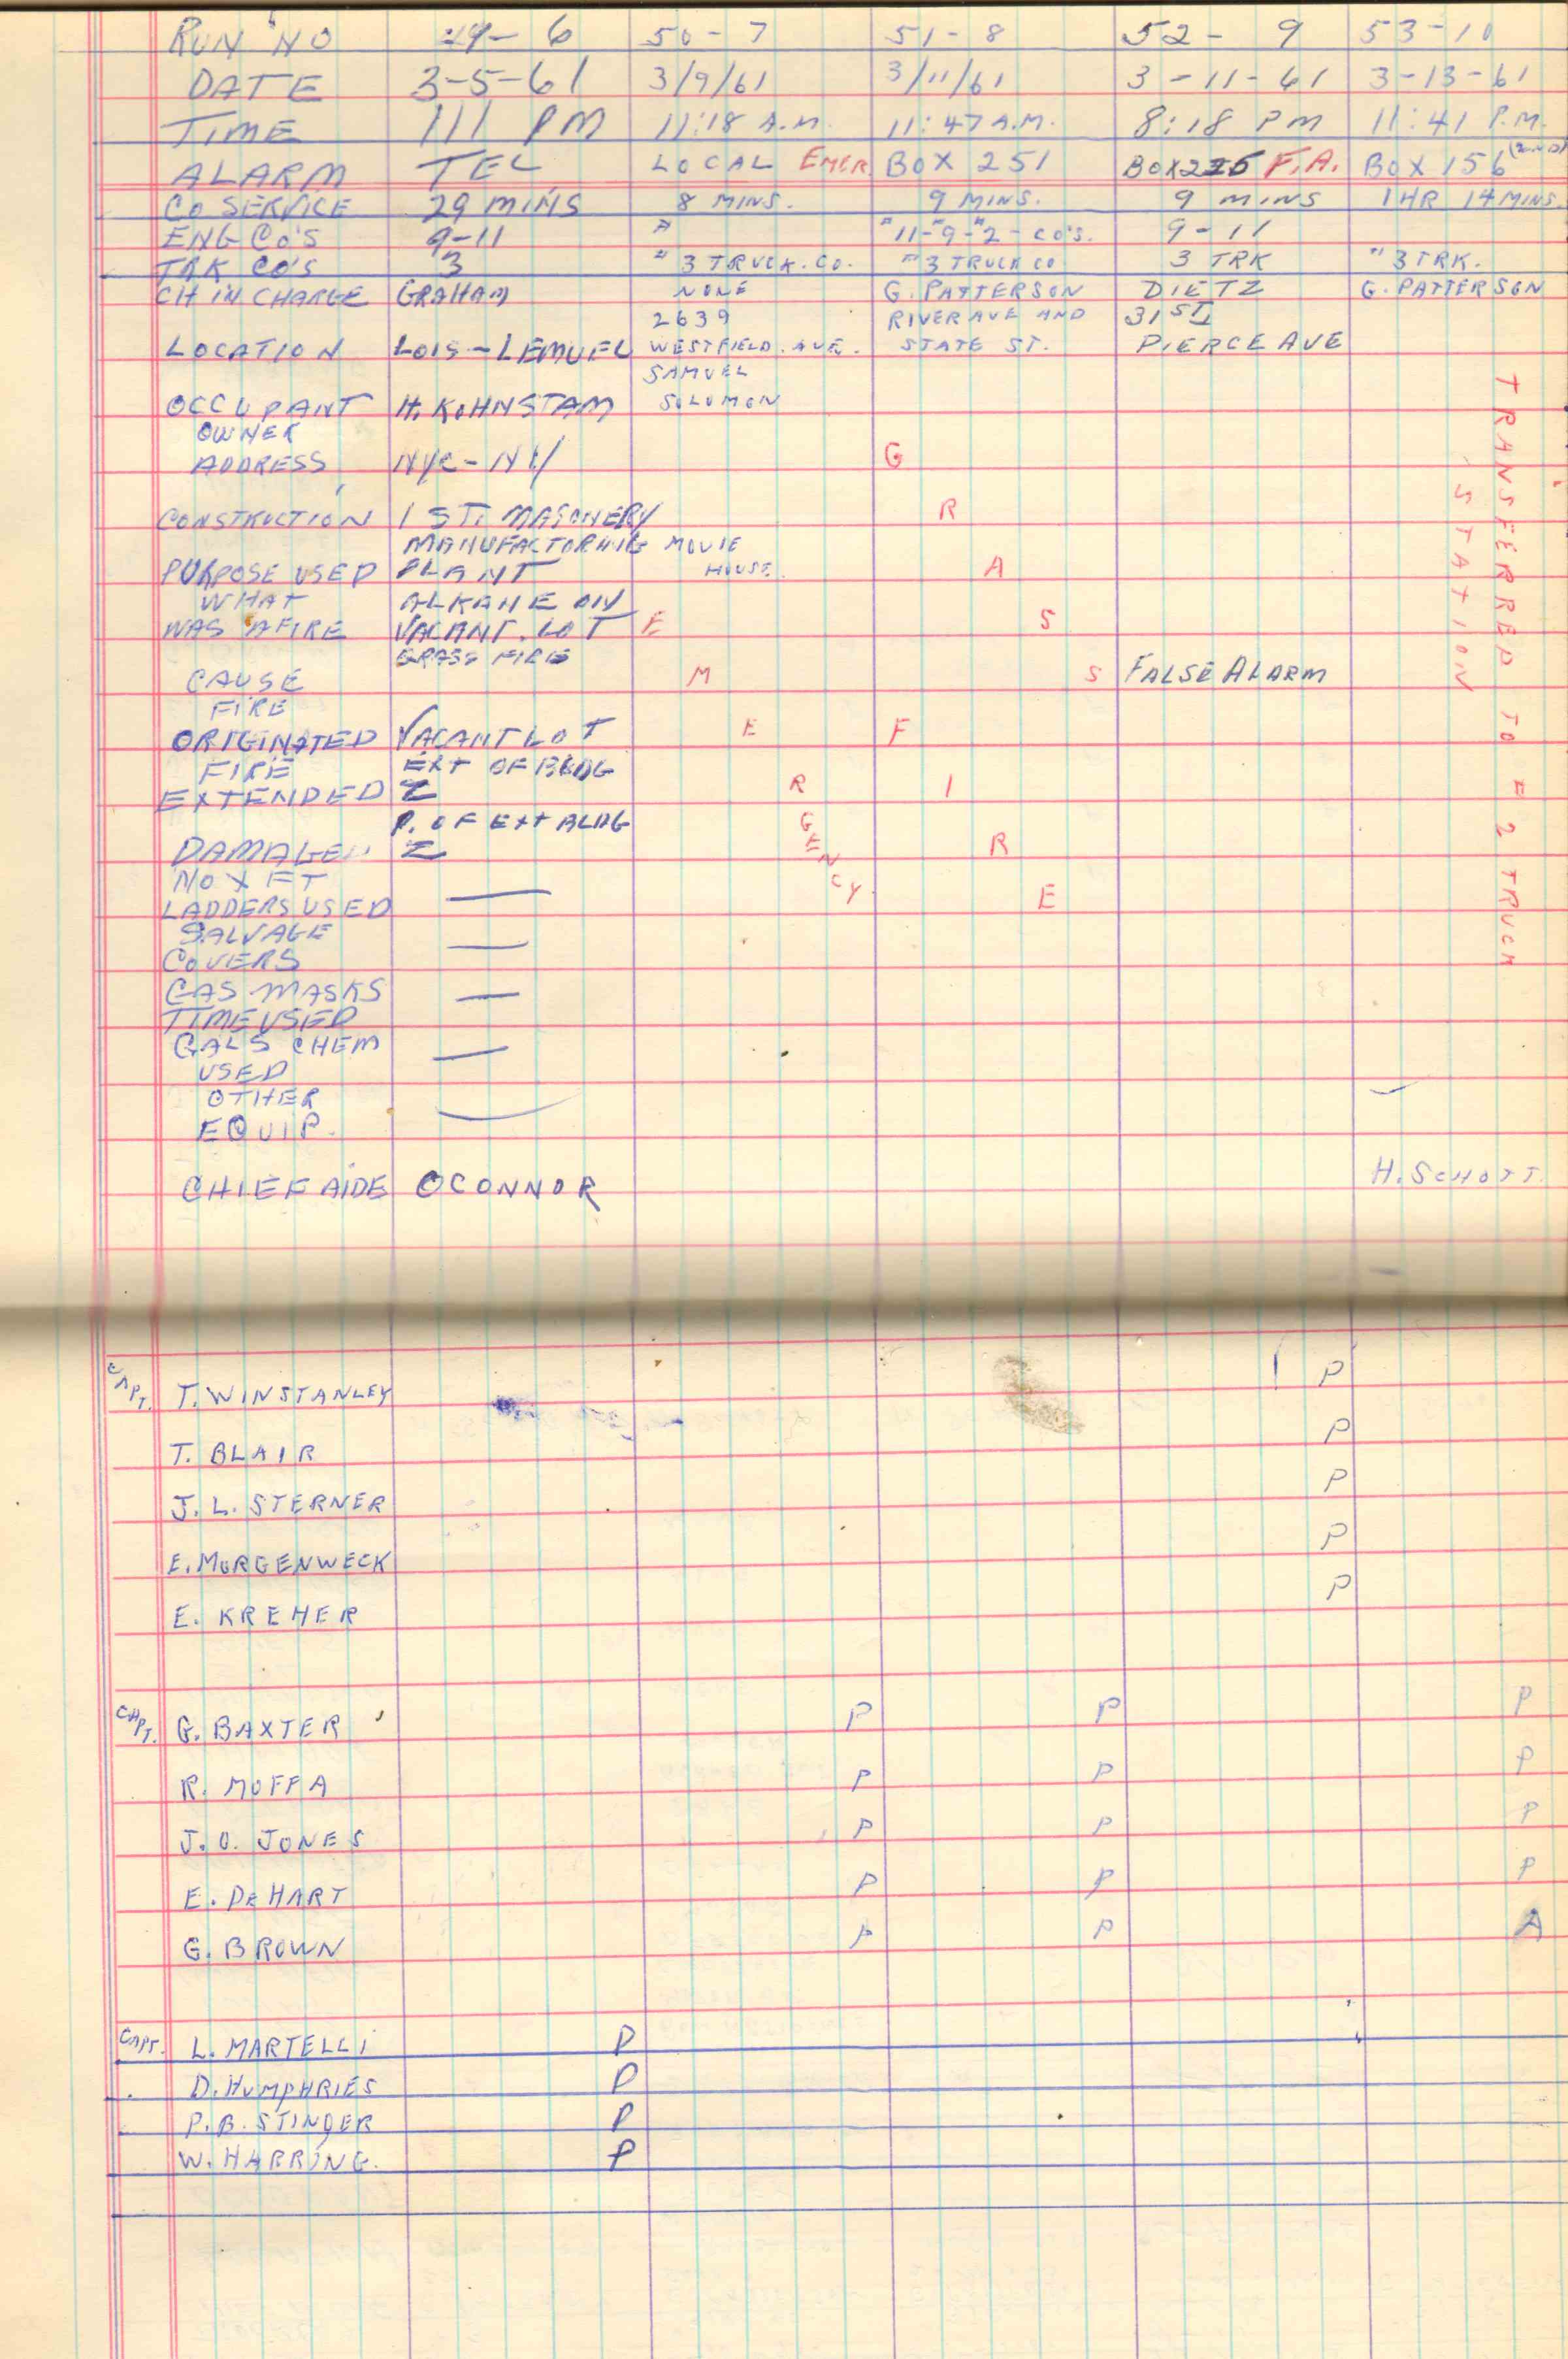 RUN NO 49-6 50-7 51-8 52-9 53-10
DATE 3-5-61 3/9/61 3/11/61 3-11-61 3-13-61
TIME 111 PM 11:18 A.M. 11:47 A.M. 8:18 PM 11:41 P.M.
ALARM TEL LOCAL EMER. BOX 251 BOX 226 F.A. BOX 156 (2ND)
CO SERVICE 29 MINS 8 MINS. 9 MINS. 9 MINS 1 HR 14 MINS.
ENG CO'S 9-11 " "11-"9-"2-CO'S. 9-11
TRK CO'S 3 "3 TRUCK. CO. "3 TRUCK CO 3 TRK "3 TRK.
CH IN CHARGE GRAHAM NONE G. PATTERSON DIETZ G. PATTERSON
2639 RIVER AVE AND 31 ST
LOCATION LOIS-LEMUEL WESTFIELD. AVE. STATE ST. PIERCE AVE
SAMUEL
OCCUPANT H. KOHNSTAM SOLOMON
OWNER
ADDRESS NYC-NY
CONSTRUCTION 1 ST. MASONERY
MANUFACTORING MOVIE
PURPOSE USED PLANT HOUSE.
WHAT ALKANE ON
WAS AFIRE VACANT. LOT
GRASS FIRE
CAUSE FALSE ALARM
FIRE
ORIGINATED VACANT LOT
FIRE EXT OF BLDG
EXTENDED Z
P. OF EXT BLDG
DAMAGED Z
NO X FT
LADDERS USED —
SALVAGE
COVERS —
GAS MASKS —
TIME USED
GALS CHEM
USED —
OTHER
EQUIP. —
EMERGENCY.
GRASS FIRE
TRANSFERRED TO E 2 TRUCK
STATION
CHIEF AIDE OCONNOR H. SCHOTT.
CAPT. T. WINSTANLEY P
T. BLAIR P
J. L. STERNER P
E. MORGENWECK P
E. KREHER P
CAPT. G. BAXTER P P P
R. MOFFA P P P
J. O. JONES P P P
E. DEHART P P P
G. BROWN P P A
CAPT. L. MARTELLI P
D. HUMPHRIES P
P. B. STINGER P
W. HARRING. P